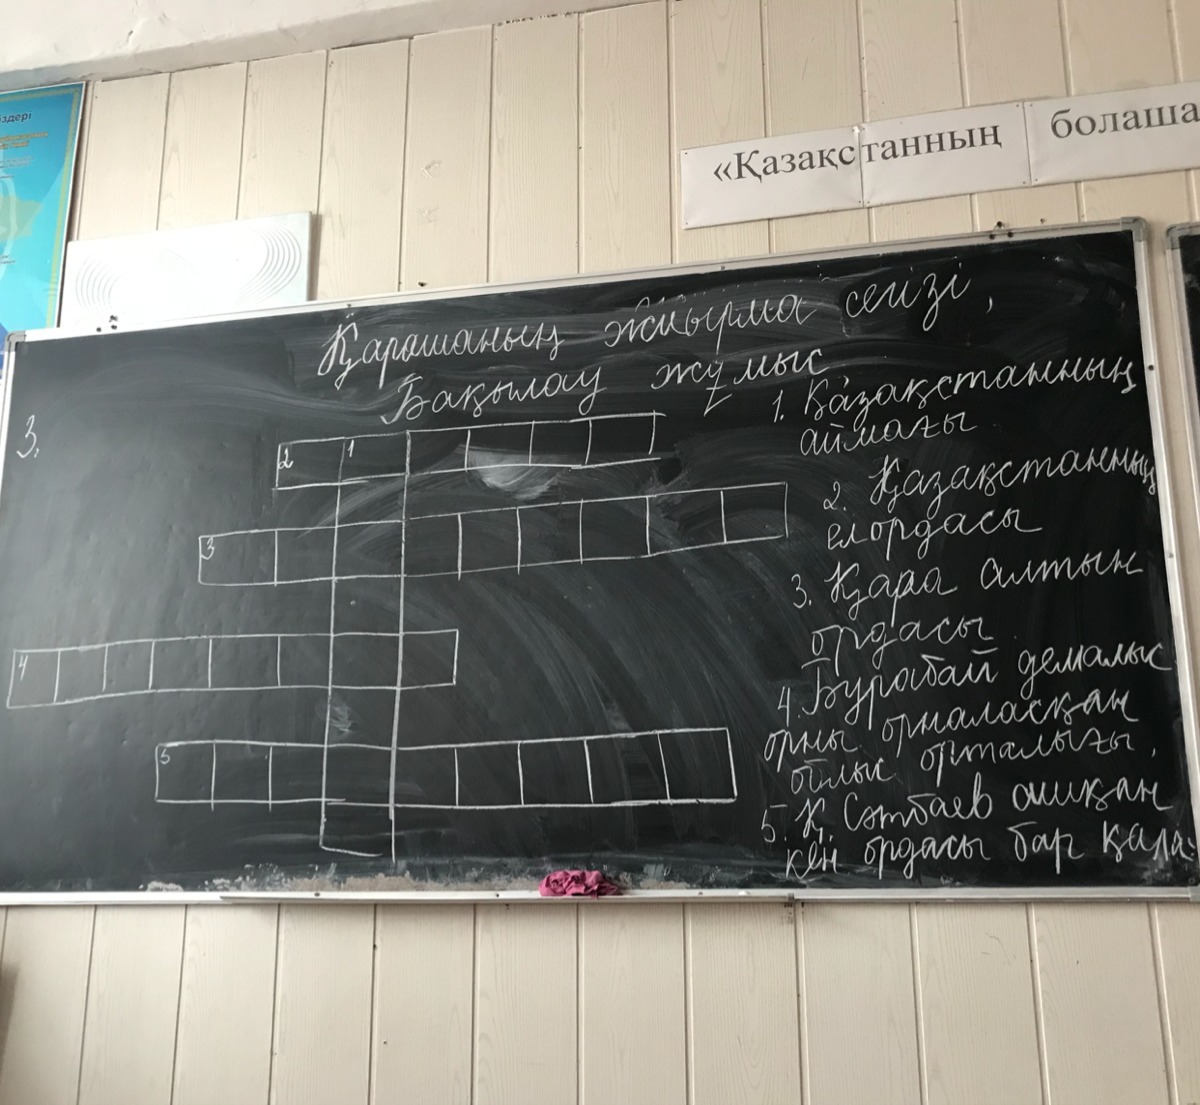 іздері
«Қазақстанның болаша
Қарашаның жиырма сегізі,
Бақылау жұмыс
3.
1. Қазақстанның
аймағы
2. Қазақстанның
елордасы
3. Қара алтын
ордасы
4. Бурабай демалыс
орны орналасқан
облыс орталығы,
5. Қ. Сәтбаев ашқан
кен ордасы бар қала.
2 1
3
4
5